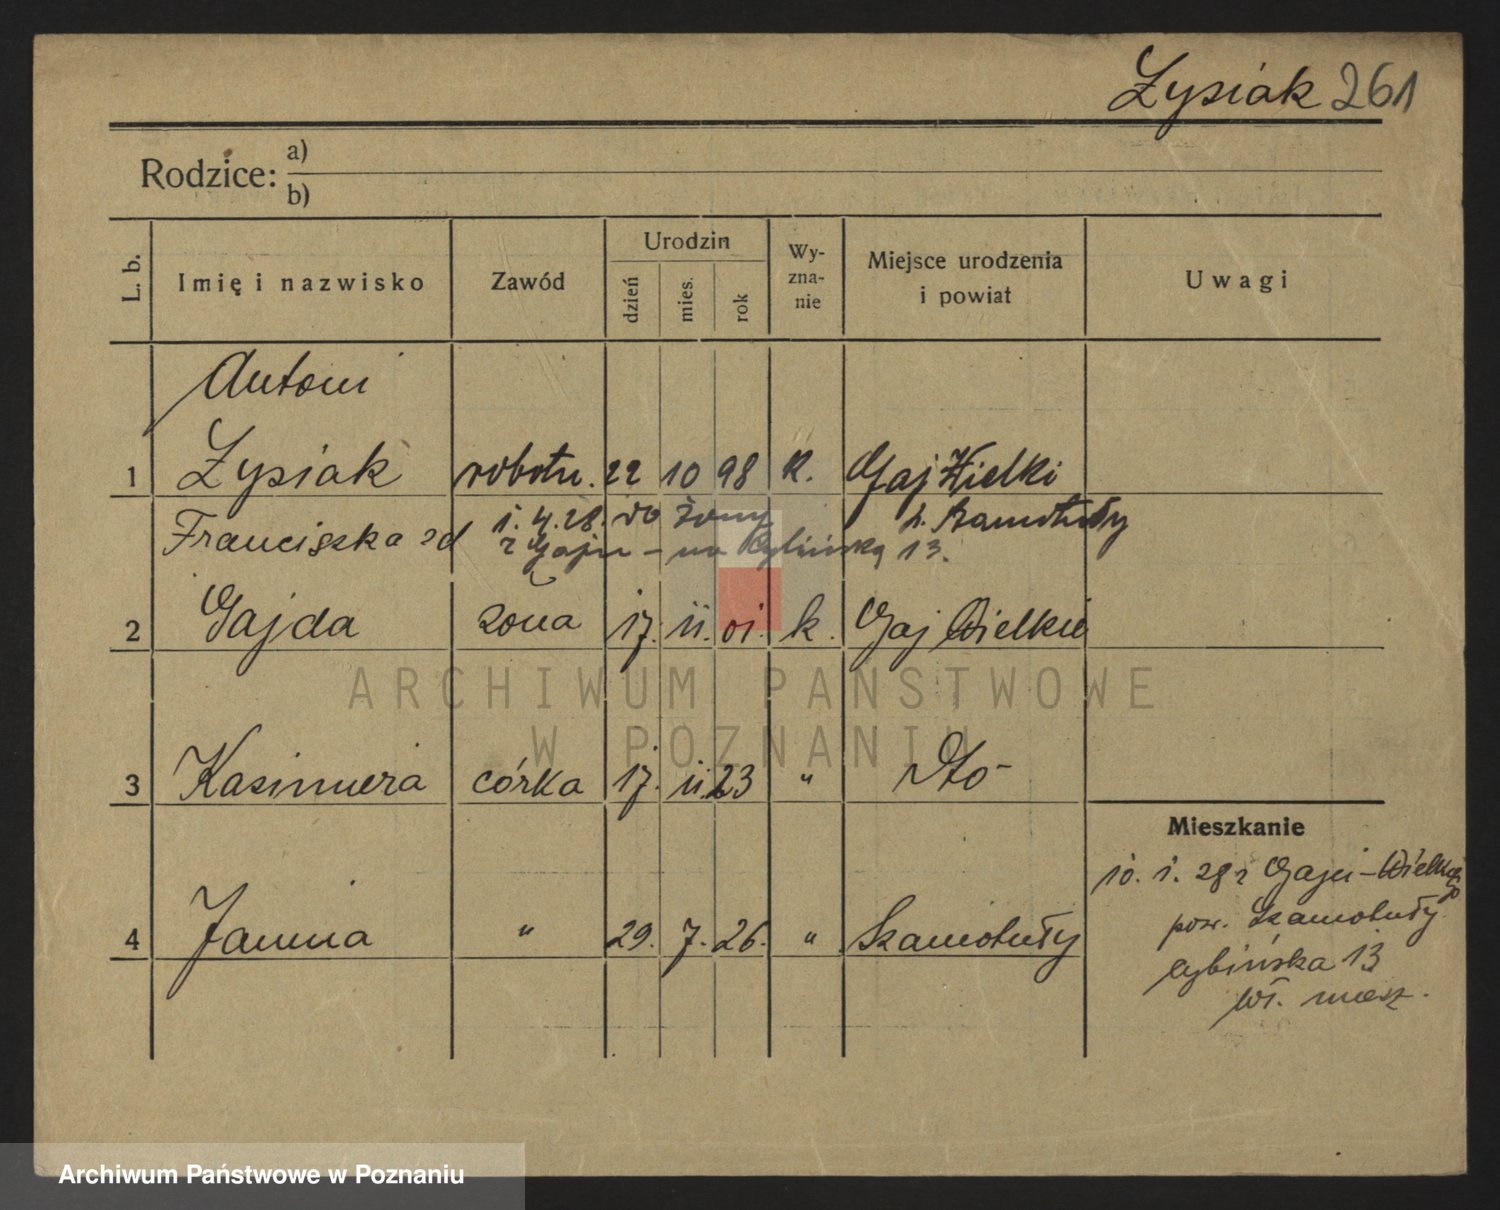 Łysiak 261
Rodzice: a)
b)
L. b.
Imię i nazwisko
Zawód
Urodzin
dzień
mies.
rok
Wy-
zna-
nie
Miejsce urodzenia
i powiat
Uwagi
Antoni
1 Łysiak robotn. 22 10 98 k. Gaj Wielki
1. 4. 28. do żony p. Szamotuły
Franciszka zd z Gaju – na Cybińską 13.
2 Gajda żona 17. 11. 01. k. Gaj Wielki
3 Kazimiera córka 17. 11. 23 " dto
Mieszkanie
10. 1. 28 z Gaju-Wielkiego
pow. Szamotuły
4 Janina " 29. 7. 26. " Szamotuły
Cybińska 13
wł. miesz.
ARCHIWUM PAŃSTWOWE
W POZNANIU
Archiwum Państwowe w Poznaniu